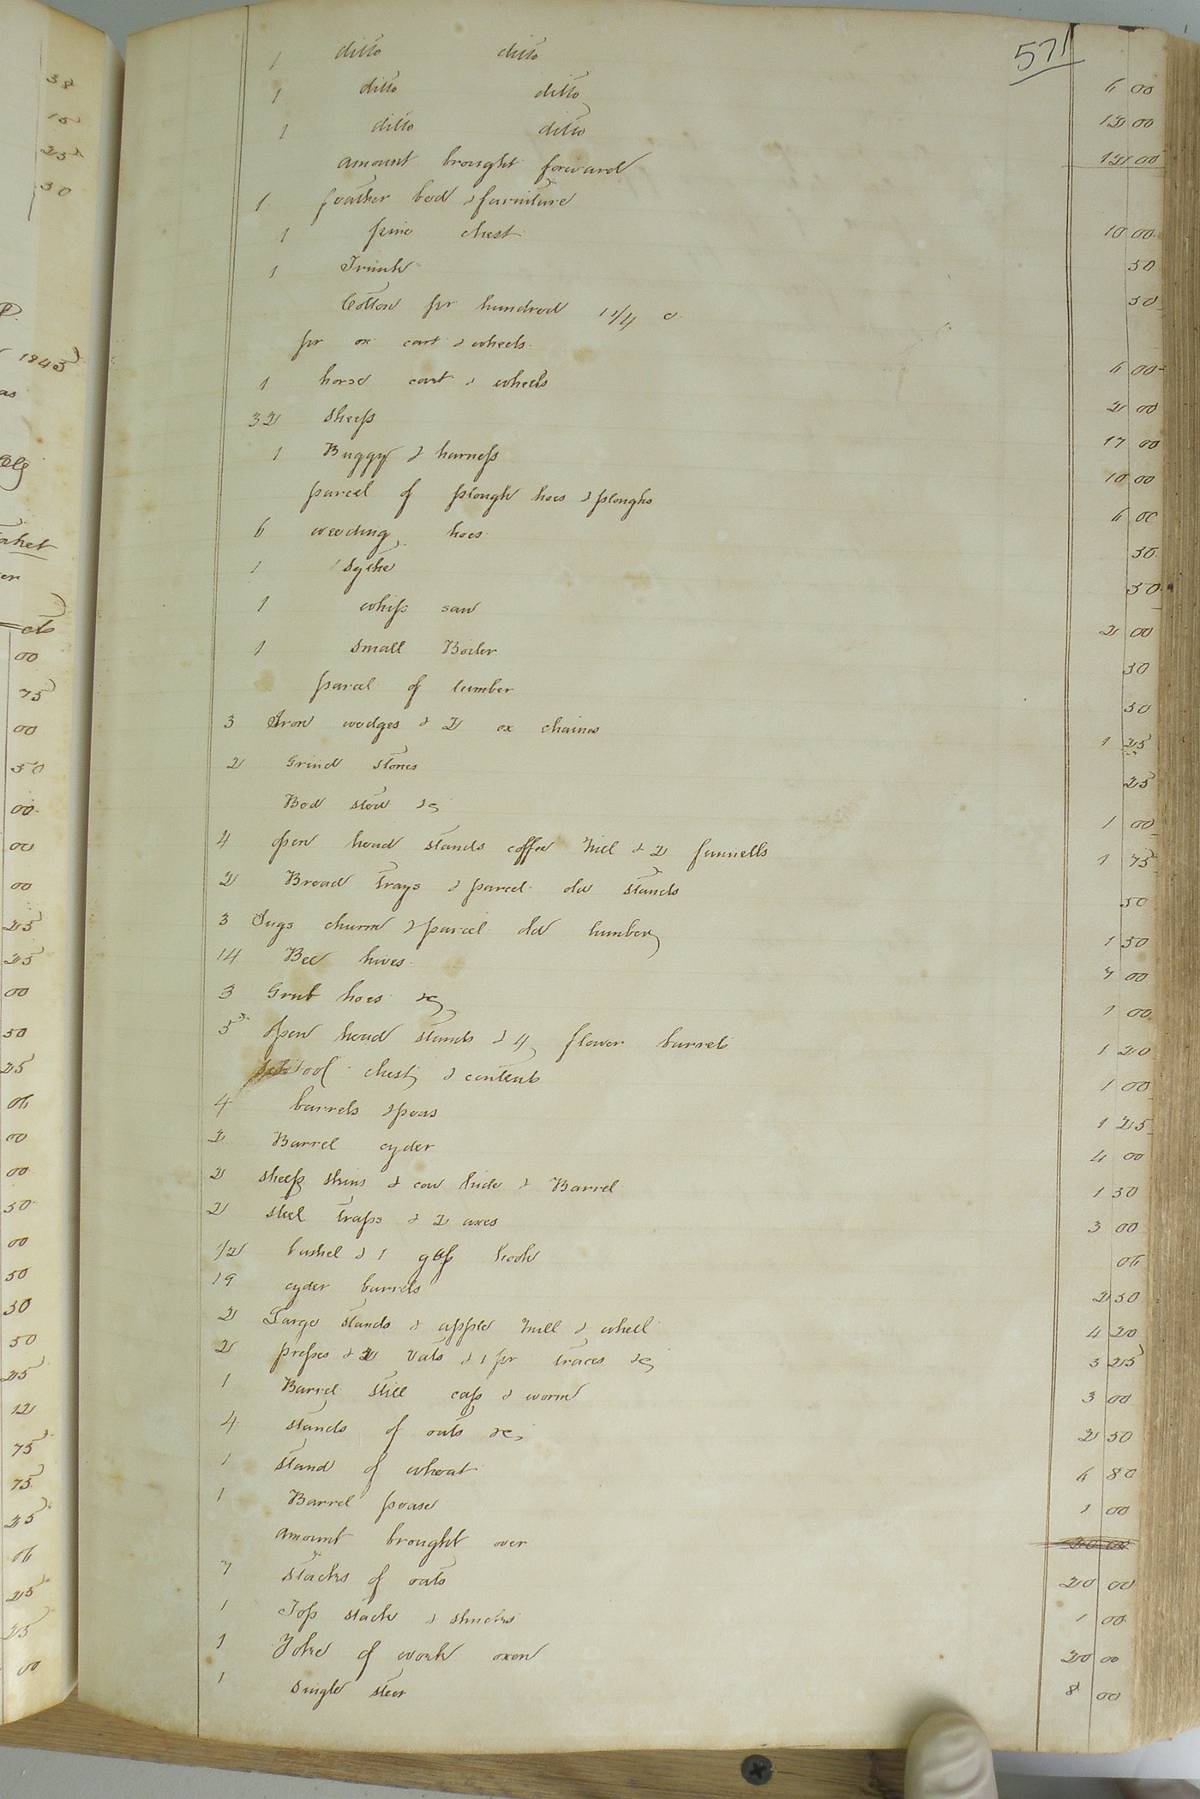 571
1 ditto ditto
1 ditto ditto 6 00
1 ditto ditto 12 00
amount brought forward 12 00
1 feather bed & furniture
1 pine chest 10 00
1 Trunk 50
Cotton pr hundred 1 3/4 c 50
pr ox cart & wheels
1 horse cart & wheels 6 00
32 sheep 2 00
1 Buggy & harness 17 00
parcel of plough hoes & ploughs 10 00
6 weeding hoes 6 00
1 sythe 50
1 whip saw 50
1 small Boiler 2 00
parcel of lumber 50
3 Iron wedges & 2 ox chains 50
2 Grind stones 1 25
Bed sted &c 25
4 open head stands coffee mill & 2 funnells 1 00
2 Bread trays & parcel old stands 1 75
3 Jugs churn & parcel old lumber 50
14 Bee hives 1 50
3 Grub hoes &c 7 00
5 open head stands & 4 flower barrels 1 00
tool chest & contents 1 20
4 barrels & peas 1 00
2 Barrel cyder 1 25
2 sheep skins & cow hide & Barrel 4 00
2 steel traps & 2 axes 1 50
1/2 bushel & 1 hook 3 00
19 cyder barrels 06
2 Large stands & apple mill & wheel 2 50
2 presses & 2 vats & 1 pr traces &c 4 20
1 Barrel still cap & worm 3 25
4 stands of oats &c 3 00
1 stand of wheat 2 50
1 Barrel pease 6 80
amount brought over 1 00
7 stacks of oats
1 Top stack & shucks 20 00
1 Yoke of work oxen 1 00
1 single steer 20 00
8 00
38
15
25
30
1843
cts
00
75
00
50
00
00
00
25
25
00
50
25
06
00
00
50
00
50
50
50
25
12
75
75
25
06
25
25
00